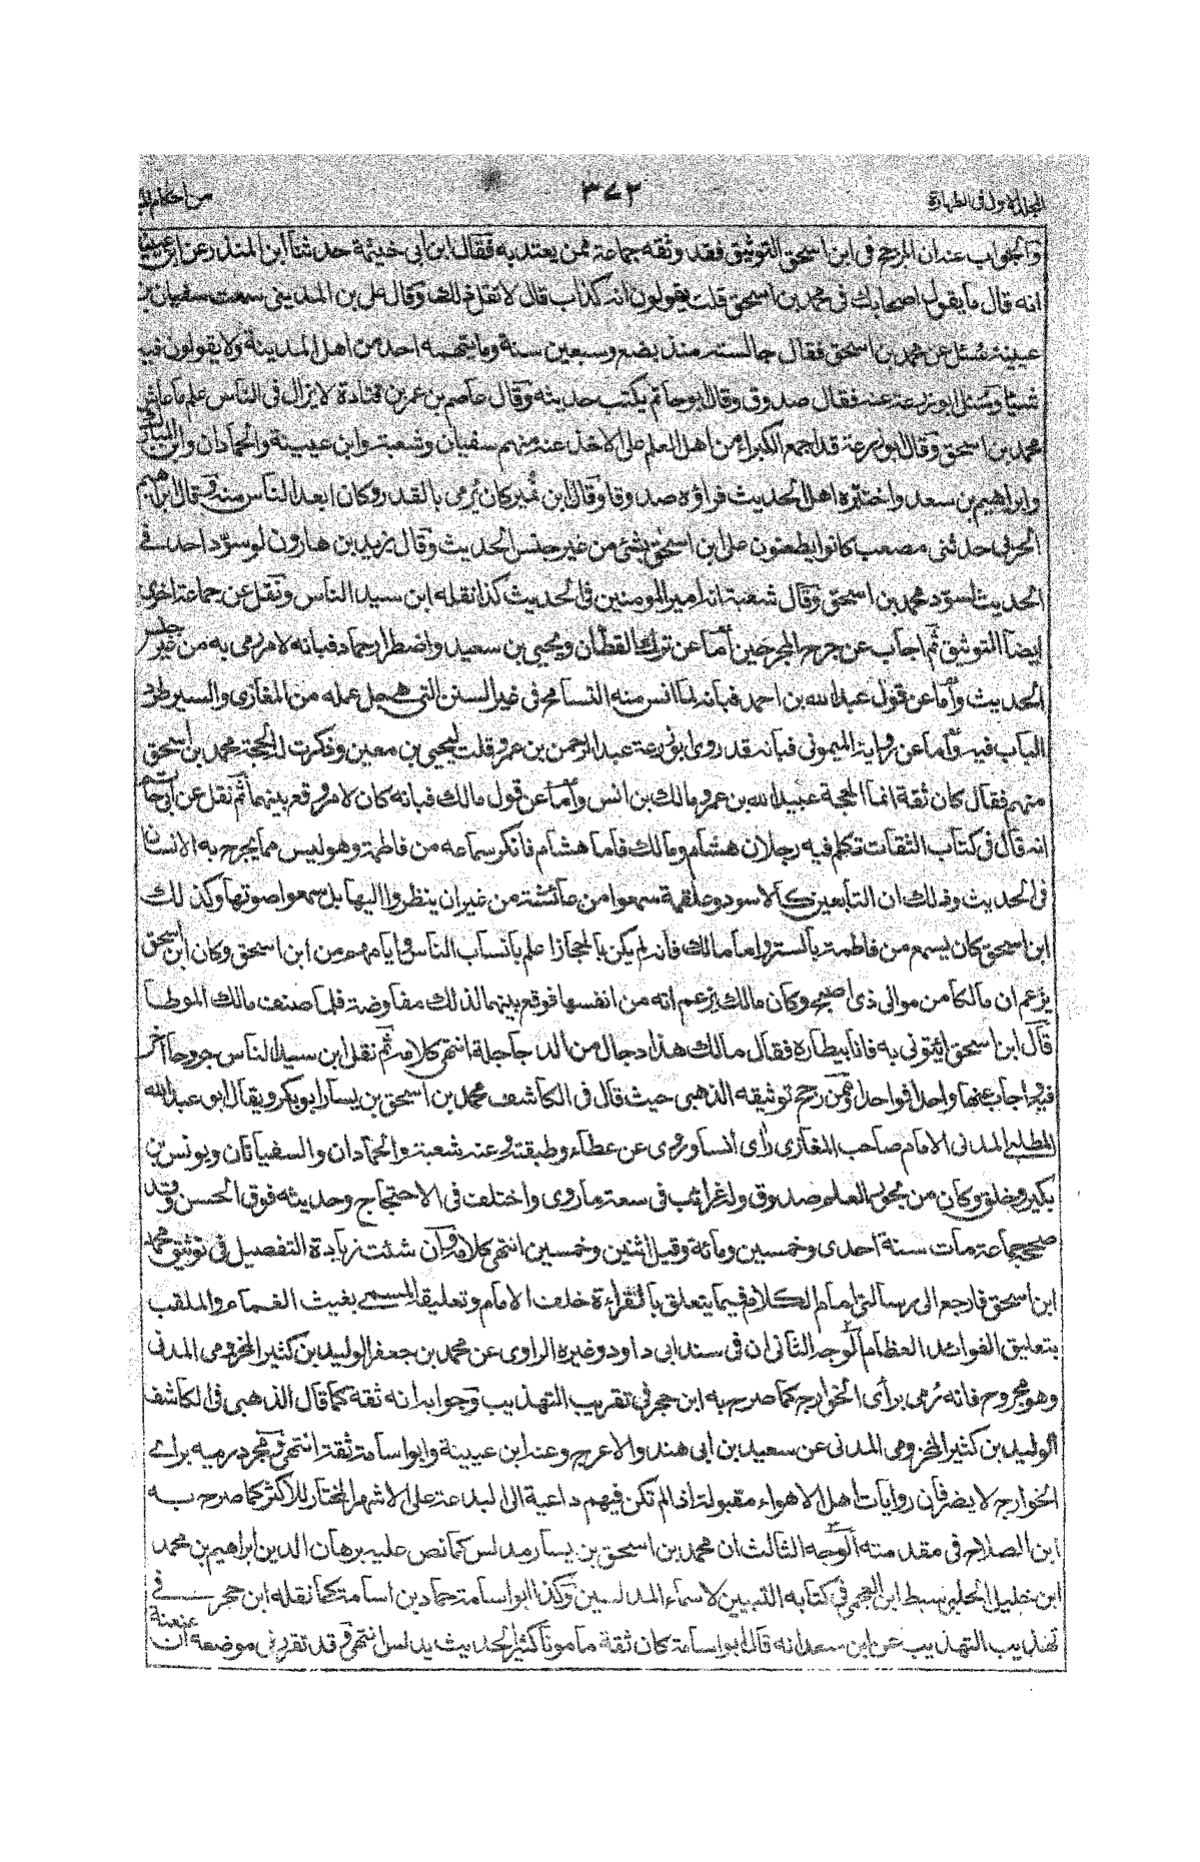 المجلد الاول فى الطهارة ٣٧٢ من احكام
والجواب عنه ان المرجح فى ابن اسحق التوثيق فقد وثقه جماعة ممن يعتد به فقال ابن ابى خيثمة حدثنا ابن المنذر عن ابن عيينة
انه قال ما يقول اصحابك فى محمد بن اسحق قلت يقولون انه كذاب قال لا تقل ذلك وقال على بن المدينى سمعت سفيان بن
عيينة سئل عن محمد بن اسحق فقال جالسته منذ بضع وسبعين سنة وما يتهمه احد من اهل المدينة ولا يقولون فيه
شيئا وسئل ابو زرعة عنه فقال صدوق وقال ابو حاتم يكتب حديثه وقال عاصم بن عمر بن قتادة لا يزال فى الناس علم ما عاش
محمد بن اسحق وقال ابو زرعة قد اجمع الكبراء من اهل العلم على الاخذ عنه منهم سفيان وشعبة وابن عيينة والحمادان وابن المبارك
وابراهيم بن سعد واختبره اهل الحديث فراؤه صدوقا وقال ابن نمير كان يُرمى بالقدر وكان ابعد الناس منه وقال ابراهيم
الحربى حدثنى مصعب كانوا يطعنون على ابن اسحق بشئ من غير جنس الحديث وقال يزيد بن هارون لو سوّد احد فى
الحديث لسوّد محمد بن اسحق وقال شعبة انه امير المومنين فى الحديث كذا نقله ابن سيد الناس ونقل عن جماعة اخرى
ايضا التوثيق ثم اجاب عن جرح المجرحين أما عن ترك القطان ويحيى بن سعيد واضطراب حماد فبانه لامر رمى به من غير جنس
الحديث وأما عن قول عبد الله بن احمد فبانه لما انس منه التسامح فى غير السنن التى هى جل عمله من المغازى والسير طرد
الباب فيه وأما عن رواية الميمونى فبانه قد روى ابو زرعة عبد الرحمن بن عمرو قلت ليحيى بن معين وذكرت له الحجة محمد بن اسحق
منهم فقال كان ثقة انما الحجة عبيد الله بن عمر ومالك بن انس وأما عن قول مالك فبانه كان لامر وقع بينهما ثم نقل عن ابى حاتم
انه قال فى كتاب الثقات تكلم فيه رجلان هشام ومالك فاما هشام فانكر سماعه من فاطمة وهو ليس مما يجرح به الانسان
فى الحديث وذلك ان التابعين كالاسود وعلقمة سمعوا من عائشة من غير ان ينظروا اليها بل سمعوا صوتها وكذلك
ابن اسحق كان يسمع من فاطمة بالستر واما مالك فانه لم يكن بالحجاز اعلم بانساب الناس وايامهم من ابن اسحق وكان ابن اسحق
يزعم ان مالكا من موالى ذى اصبح وكان مالك يزعم انه من انفسها فوقع بينهما لذلك مفاوضة فلما صنف مالك الموطا
قال ابن اسحق ايتونى به فانا بيطاره فقال مالك هذا دجال من الدجاجلة انتهى كلامه ثم نقل ابن سيد الناس جروحا آخر
فيه واجاب عنها واحدا فواحدا وممن رجح توثيقه الذهبى حيث قال فى الكاشف محمد بن اسحق بن يسار ابو بكر ويقال ابو عبد الله
المطلبى المدنى الامام صاحب المغازى رأى أنسا وروى عن عطاء وطبقته وعنه شعبة والحمادان والسفيانان ويونس بن
بكير وخلق وكان من بحور العلم صدوق وله غرائب فى سعة ما روى واختلف فى الاحتجاج وحديثه فوق الحسن وقد
صححه جماعة مات سنة احدى وخمسين ومائة وقيل اثنين وخمسين انتهى كلامه وان شئت زيادة التفصيل فى توثيق محمد
ابن اسحق فارجع الى رسالتى امام الكلام فيما يتعلق بالقراءة خلف الامام وتعليقها المسمى بغيث الغمام والملقب
بتعليق الفوائد العظام الوجه الثانى ان فى سند ابى داود وغيره الراوى عن محمد بن جعفر الوليد بن كثير المخزومى المدنى
وهو مجروح فانه رُمى برأى الخوارج كما صرح به ابن حجر فى تقريب التهذيب وجوابه انه ثقة كما قال الذهبى فى الكاشف
الوليد بن كثير المخزومى المدنى عن سعيد بن ابى هند والاعرج وعنه ابن عيينة وابو اسامة ثقة انتهى ومجرد رميه براى
الخوارج لا يضر فان روايات اهل الاهواء مقبولة اذا لم تكن فيهم داعية الى البدعة على الاشهر المختار للاكثر كما صرح به
ابن الصلاح فى مقدمته الوجه الثالث ان محمد بن اسحق بن يسار مدلس كما نص عليه برهان الدين ابراهيم بن محمد
ابن خليل الحلبى سبط ابن العجمى فى كتابه التبيين لاسماء المدلسين وكذا ابو اسامة حماد بن اسامة كما نقله ابن حجر فى
تهذيب التهذيب عن ابن سعد انه قال ابو اسامة كان ثقة مامونا كثير الحديث يدلس انتهى وقد تقرر فى موضعه ان عنعنة